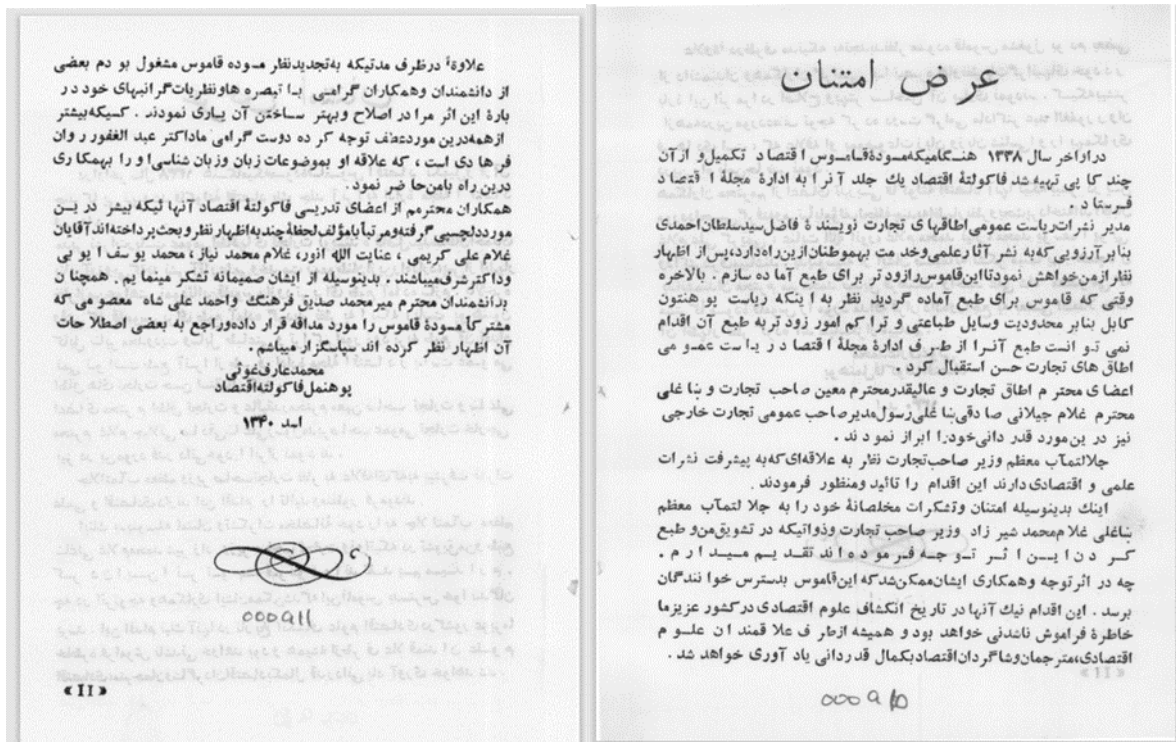 عرض امتنان
دراواخر سال ۱۳۳۸ هنگامیکه مسودهٔ قاموس اقتصاد تکمیل و ازآن
چند کاپی تهیه شد فاکولتهٔ اقتصاد یک جلد آنرا به ادارهٔ مجلهٔ اقتصاد
فرستاد.
مدیر نشرات ریاست عمومی اطاقهای تجارت نویسندهٔ فاضل سید سلطان احمدی
بنابر آرزویی که به نشر آثار علمی و خدمت بهموطنان ازین راه دارد، پس از اظهار
نظر ازمن خواهش نمود تا این قاموس را زود تر برای طبع آماده سازم. بالاخره
وقتی که قاموس برای طبع آماده گردید نظر به اینکه ریاست پوهنتون
کابل بنابر محدودیت وسایل طباعتی و تراکم امور زود تر به طبع آن اقدام
نمی توانست طبع آنرا از طرف ادارهٔ مجلهٔ اقتصاد ریاست عمومی
اطاق های تجارت حسن استقبال کرد.
اعضای محترم اطاق تجارت و عالیقدر محترم معین صاحب تجارت و ښاغلی
محترم غلام جیلانی صادقی ښاغلی رسول مدیر صاحب عمومی تجارت خارجی
نیز درین مورد قدر دانی خود را ابراز نمودند.
جلالتمآب معظم وزیر صاحب تجارت نظر به علاقه‌ای که به پیشرفت نشرات
علمی و اقتصادی دارند این اقدام را تائید و منظور فرمودند.
اینک بدینوسیله امتنان و تشکرات مخلصانهٔ خود را به جلالتمآب معظم
ښاغلی غلام محمد شیرزاد وزیر صاحب تجارت و ذواتیکه در تشویق من و طبع
کردن این اثر توجه فرموده اند تقدیم میدارم.
چه در اثر توجه و همکاری ایشان ممکن شد که این قاموس بدسترس خوانندگان
برسد. این اقدام نیک آنها در تاریخ انکشاف علوم اقتصادی درکشور عزیز ما
خاطرهٔ فراموش ناشدنی خواهد بود و همیشه از طرف علاقمندان علوم
اقتصادی، مترجمان و شاگردان اقتصاد بکمال قدردانی یاد آوری خواهد شد.
علاوةً درظرف مدتیکه به تجدید نظر مسوده قاموس مشغول بودم بعضی
از دانشمندان و همکاران گرامی با تبصره ها و نظریات گرانبهای خود در
بارهٔ این اثر مرا در اصلاح و بهتر ساختن آن یاری نمودند. کسیکه بیشتر
از همه درین مورد عطف توجه کرده دوست گرامی ما داکتر عبد الغفور روان
فرهادی است، که علاقه او بموضوعات زبان و زبان شناسی او را بهمکاری
درین راه با من حاضر نمود.
همکاران محترمم از اعضای تدریسی فاکولتهٔ اقتصاد آنهائیکه بیشتر درین
مورد دلچسپی گرفته و مرتباً با مؤلف لحظهٔ چند به اظهار نظر و بحث پرداخته اند آقایان
غلام علی کریمی، عنایت الله انور، غلام محمد نیاز، محمد یوسف ایوبی
و داکتر شرف میباشند. بدینوسیله از ایشان صمیمانه تشکر مینمایم. همچنان
بدانشمندان محترم میرمحمد صدیق فرهنگ و احمد علی شاه معصومی که
مشترکاً مسودهٔ قاموس را مورد مداقه قرار داده و راجع به بعضی اصطلاحات
آن اظهار نظر کرده اند سپاسگزار میباشم.
محمد عارف غوثی
پوهنمل فاکولته اقتصاد
اسد ۱۳۴۰
000911
«II»